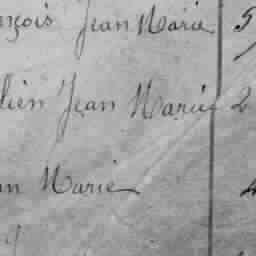 nçois Jean Marie 5
lien Jean Marie 2
an Marie 4